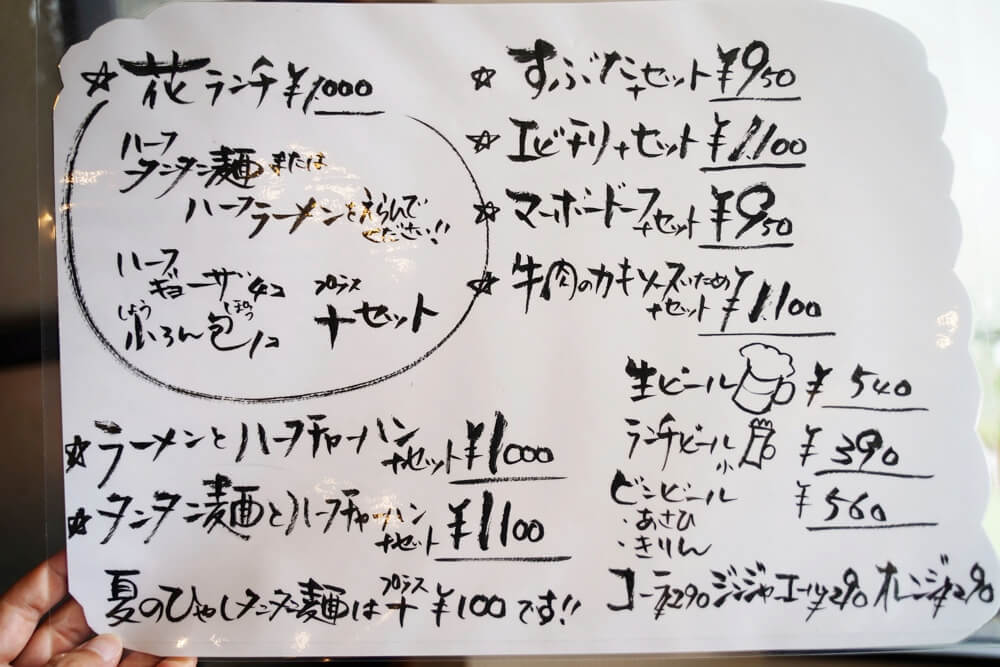 ☆花ランチ ¥1,000
ハーフ
タンタン麺または
ハーフラーメンをえらんで
ください!!
ハーフ
ギョーザ4コ
しょう ぽう
小ろん包1コ
プラス
+セット
☆ラーメンとハーフチャーハン
+セット ¥1000
☆タンタン麺とハーフチャーハン
+セット ¥1100
夏のひやしタンタン麺は
プラス
+ ¥100です!!
☆すぶた+セット ¥950
☆エビチリ+セット ¥1,100
☆マーボードーフ+セット ¥950
☆牛肉のカキソースいため
+セット ¥1,100
生ビール ¥540
ランチビール小 ¥390
ビンビール ¥560
・あさひ
・きりん
コーラ¥290 ジンジャエール¥290 オレンジ¥290